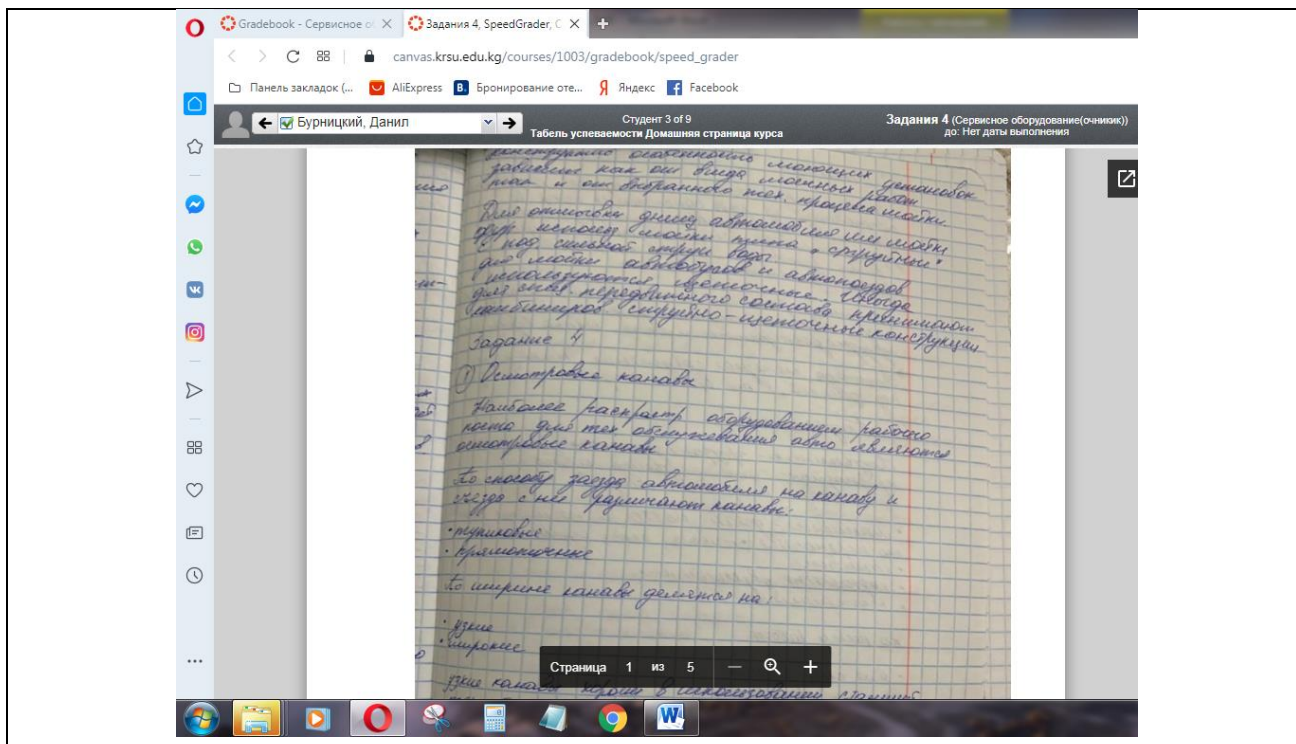 Gradebook - Сервисное о
Задания 4, SpeedGrader, С
canvas.krsu.edu.kg/courses/1003/gradebook/speed_grader
Панель закладок (...
AliExpress
B. Бронирование оте...
Я Яндекс
Facebook
Бурницкий, Данил
Студент 3 of 9
Табель успеваемости Домашняя страница курса
Задания 4 (Сервисное оборудование(очникик))
до: Нет даты выполнения
особенность моющих установок
зависит как от вида моечных работ
так и от выбранного тех. процеса мойки.
Для отмывки днищ автомобиля или мойки
мойки типа "струйные"
под сильной струи воды.
для мойки автобусов и автопоездов
используются щеточные. Иногда
для передвижного состава
комбиниров струйно-щеточные конструкции
Задание 4
1 Осмотровые канавы
Наиболее распрастр оборудованием рабочго
поста для тех обслужевания авто являются
осмотровые канавы
По способу заезда автомобиля на канаву и
съезда с нее различают канавы:
• тупиковые
• прямоточные
По ширине канавы делятся на:
• узкие
• широкие
узкие канавы хороши в использовании
Страница 1 из 5